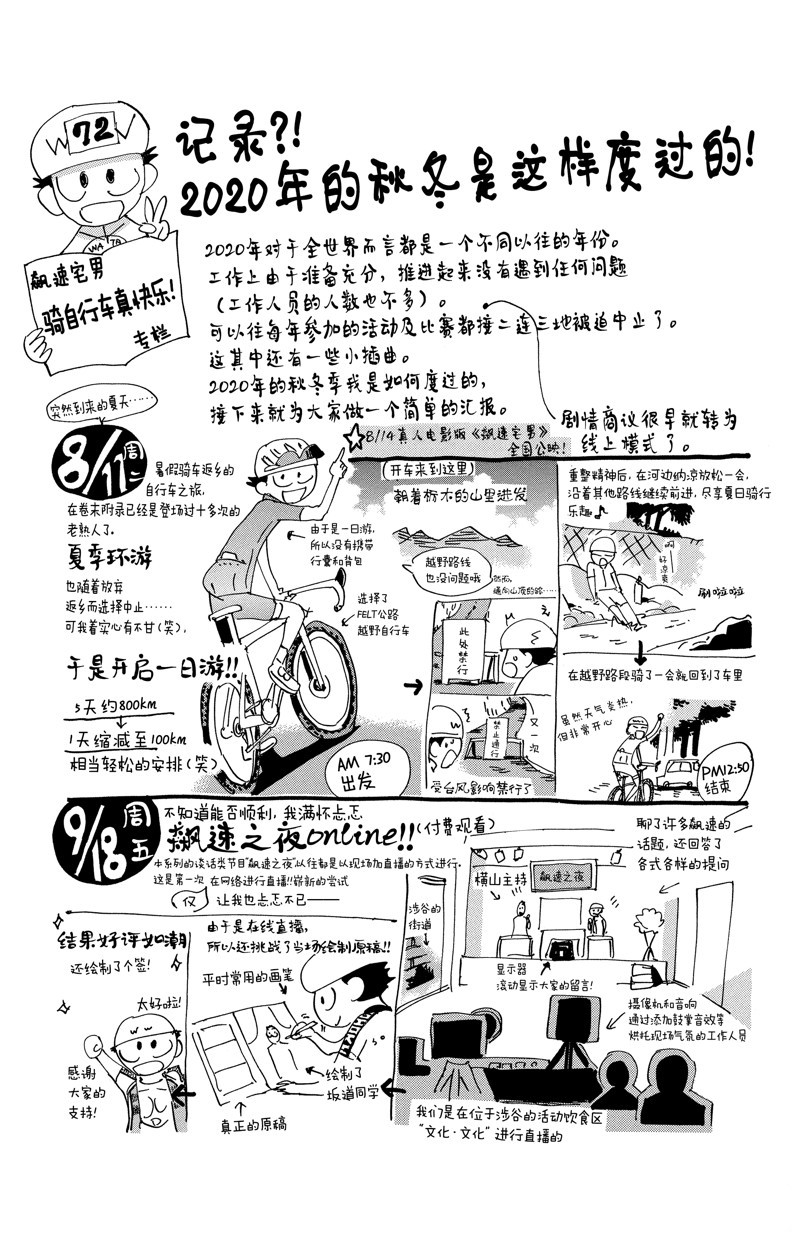 72
WV
WA
72
飙速宅男
骑自行车真快乐!
专栏
记录?!
2020年的秋冬是这样度过的!
2020年对于全世界而言都是一个不同以往的年份。
工作上由于准备充分，推进起来没有遇到任何问题
(工作人员的人数也不多)。
可以往每年参加的活动及比赛都接二连三地被迫中止了。
这其中还有一些小插曲。
2020年的秋冬季我是如何度过的，
接下来就为大家做一个简单的汇报。
剧情商议很早就转为
线上模式了。
突然到来的夏天……
8/11周二
暑假骑车返乡的
自行车之旅，
在卷末附录已经是登场过十多次的
老熟人了。
夏季环游
也随着放弃
返乡而选择中止……
可我着实心有不甘(笑)，
于是开启一日游!!
5天约800km
1天缩减至100km
相当轻松的安排(笑)
8/14真人电影版《飙速宅男》
全国公映!
由于是一日游，
所以没有携带
行囊和背包
选择了
FELT公路
越野自行车
AM 7:30
出发
(开车来到这里)
朝着栃木的山里进发
越野路线
也没问题哦
然而，
通向山顶的路……
此处禁行
又一次
禁止通行
受台风影响禁行了
重整精神后，在河边纳凉放松一会，
沿着其他路线继续前进，尽享夏日骑行
乐趣♪
啊——好凉爽
刷啦啦
在越野路段骑了一会就回到了车里
虽然天气炎热，
但非常开心
PM12:50
结束
9/18周五
不知道能否顺利，我满怀忐忑
飙速之夜online!!(付费观看)
本系列的谈话类节目"飙速之夜"以往都是以现场加直播的方式进行，
这是第一次 仅在网络进行直播!!崭新的尝试
让我也忐忑不已——
结果好评如潮
还绘制了个签!
太好啦!
感谢
大家的
支持!
由于是在线直播，
所以还挑战了当场绘制原稿!!
平时常用的画笔
绘制了
坂道同学
真正的原稿
聊了许多飙速的
话题，还回答了
各式各样的提问
横山主持
飙速之夜
涉谷的
街道
显示器
滚动显示大家的留言!
摄像机和音响
通过添加鼓掌音效等
烘托现场气氛的工作人员
我们是在位于涉谷的活动饮食区
"文化·文化"进行直播的